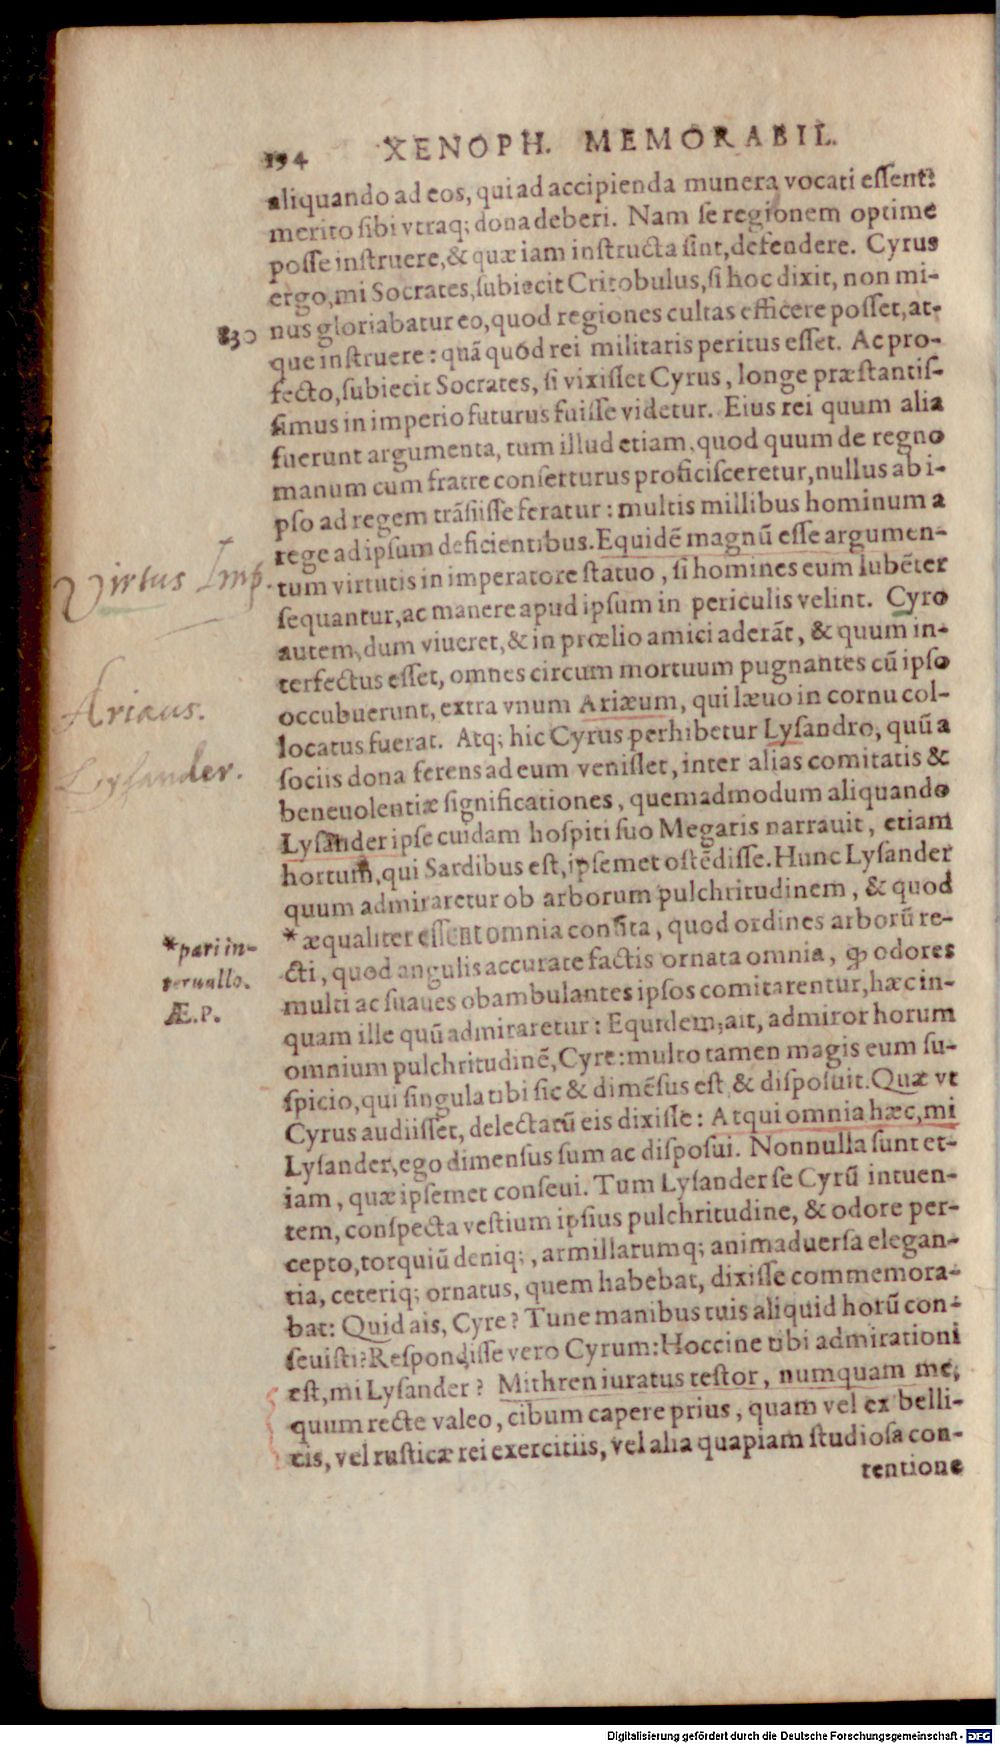 194 XENOPH. MEMORABIL.
aliquando ad eos, qui ad accipienda munera vocati essent:
merito sibi vtraq; dona deberi. Nam se regionem optime
posse instruere, & quæ iam instructa sint, defendere. Cyrus
ergo, mi Socrates, subiecit Critobulus, si hoc dixit, non mi-
830 nus gloriabatur eo, quod regiones cultas efficere posset, at-
que instruere: quã quod rei militaris peritus esset. Ac pro-
fecto, subiecit Socrates, si vixisset Cyrus, longe præstantis-
simus in imperio futurus fuisse videtur. Eius rei quum alia
fuerunt argumenta, tum illud etiam, quod quum de regno
manum cum fratre conserturus proficisceretur, nullus ab i-
pso ad regem trãsiisse feratur: multis millibus hominum a
rege ad ipsum deficientibus. Equidẽ magnũ esse argumen-
Virtus Imp.
tum virtutis in imperatore statuo, si homines eum lubẽter
sequantur, ac manere apud ipsum in periculis velint. Cyro
autem, dum viueret, & in prœlio amici aderãt, & quum in-
terfectus esset, omnes circum mortuum pugnantes cũ ipso
Ariæus.
occubuerunt, extra vnum Ariæum, qui læuo in cornu col-
locatus fuerat. Atq; hic Cyrus perhibetur Lysandro, quũ a
Lysander.
sociis dona ferens ad eum venisset, inter alias comitatis &
beneuolentiæ significationes, quemadmodum aliquando
Lysander ipse cuidam hospiti suo Megaris narrauit, etiam
hortum, qui Sardibus est, ipsemet ostẽdisse. Hunc Lysander
quum admiraretur ob arborum pulchritudinem, & quod
*pari in-
teruallo.
Æ.P.
* æqualiter essent omnia consita, quod ordines arborũ re-
cti, quod angulis accurate factis ornata omnia, ꝙ odores
multi ac suaues obambulantes ipsos comitarentur, hæc in-
quam ille quũ admiraretur: Equidem, ait, admiror horum
omnium pulchritudinẽ, Cyre: multo tamen magis eum su-
spicio, qui singula tibi sic & dimẽsus est, & disposuit. Quæ vt
Cyrus audiisset, delectatũ eis dixisse: Atqui omnia hæc, mi
Lysander, ego dimensus sum ac disposui. Nonnulla sunt et-
iam, quæ ipsemet conseui. Tum Lysander se Cyrũ intuen-
tem, conspecta vestium ipsius pulchritudine, & odore per-
cepto, torquiũ deniq;, armillarumq; animaduersa elegan-
tia, ceteriq; ornatus, quem habebat, dixisse commemora-
bat: Quid ais, Cyre? Tune manibus tuis aliquid horũ con-
seuisti? Respondisse vero Cyrum: Hoccine tibi admirationi
est, mi Lysander? Mithren iuratus testor, numquam me,
quum recte valeo, cibum capere prius, quam vel ex belli-
cis, vel rusticæ rei exercitiis, vel alia quapiam studiosa con-
tentione
Digitalisierung gefördert durch die Deutsche Forschungsgemeinschaft - DFG